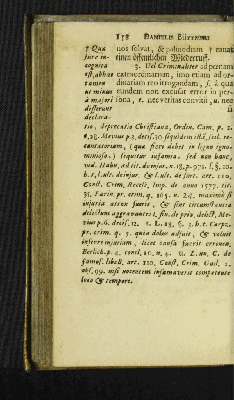 158 DANIELIS
† Qua
jure in-
cognita
est, abhor
tamen
ut minus
à majori
differunt
declara-
nos solvat, & palinodiam † canat
einen öffentlichen Wiederruff.
3. Vel Criminaliter ad pœnam
extraordinariam, imo etiam ad or-
dinariam reo irrogandam, si à qua
eundem non excusat error in per-
sona, v. nec veritas convitii, u. nec
si
tio, deprecatio Christiana, Ordin. Cam. p. 2.
t. 28. Mevius p. 3. decis. 30
cantatoriam, (quæ fieri debet in ligno igno-
minioso,) sequitur infamia, sed non hanc,
vid. Hahn. ad tit. de injur. n. 13. p. 972. §. §. 10.
b. t. Lult. de injur. & Lult. de Jnst. art. 110,
Const. Crim. Recess. Imp. de anno 1577. tit.
35. Farin. pr. crim. q. 105. n. 24. maxime si
injuria atrox fuerit, & sint circumstantia
delictum aggravantes l. fin. de priv. delict. Me-
vius p. 6. decis. 12. l. 18. §. 3. b. t. Carpz.
pr. crim. q. 5. quia dolus adsuit, & voluit
inferre injuriam, licet causa fuerit erronea,
Berlich. p. 4. concl. 10. n. 4. O. L. un. C. de
famos. libell, art. 110, Const. Crim. Gail. 2.
obs. 99. nisi nocentem infamaverit competente
loco & tempore.